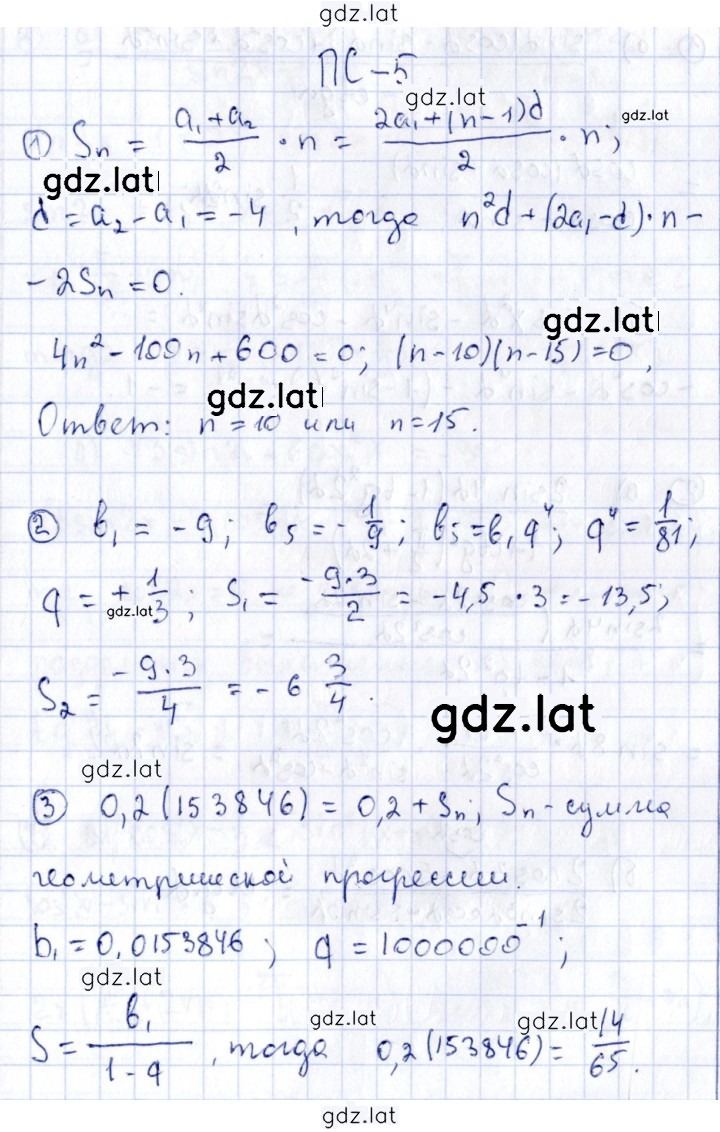 gdz.lat
ПС-5
gdz.lat
① Sₙ = (a₁+a₂)/2 · n = (2a₁+(n-1)d)/2 · n; gdz.lat
gdz.lat
d = a₂-a₁ = -4, тогда n²d+(2a₁-d)·n-
-2Sₙ = 0.
gdz.lat
4n²-100n+600=0; (n-10)(n-15)=0,
gdz.lat
Ответ: n=10 или n=15.
② b₁ = -9; b₅ = -1/9; b₅=b₁q⁴; q⁴=1/81;
q = ±1/3; S₁ = (-9·3)/2 = -4,5·3=-13,5;
gdz.lat
S₂ = (-9·3)/4 = -6 3/4.
gdz.lat
gdz.lat
③ 0,2(153846) = 0,2+Sₙ; Sₙ - сумма
геометрической прогрессии.
b₁=0,0153846; q=1000000⁻¹;
gdz.lat
gdz.lat gdz.lat
S = b₁/(1-q), тогда 0,2(153846)=14/65.
gdz.lat